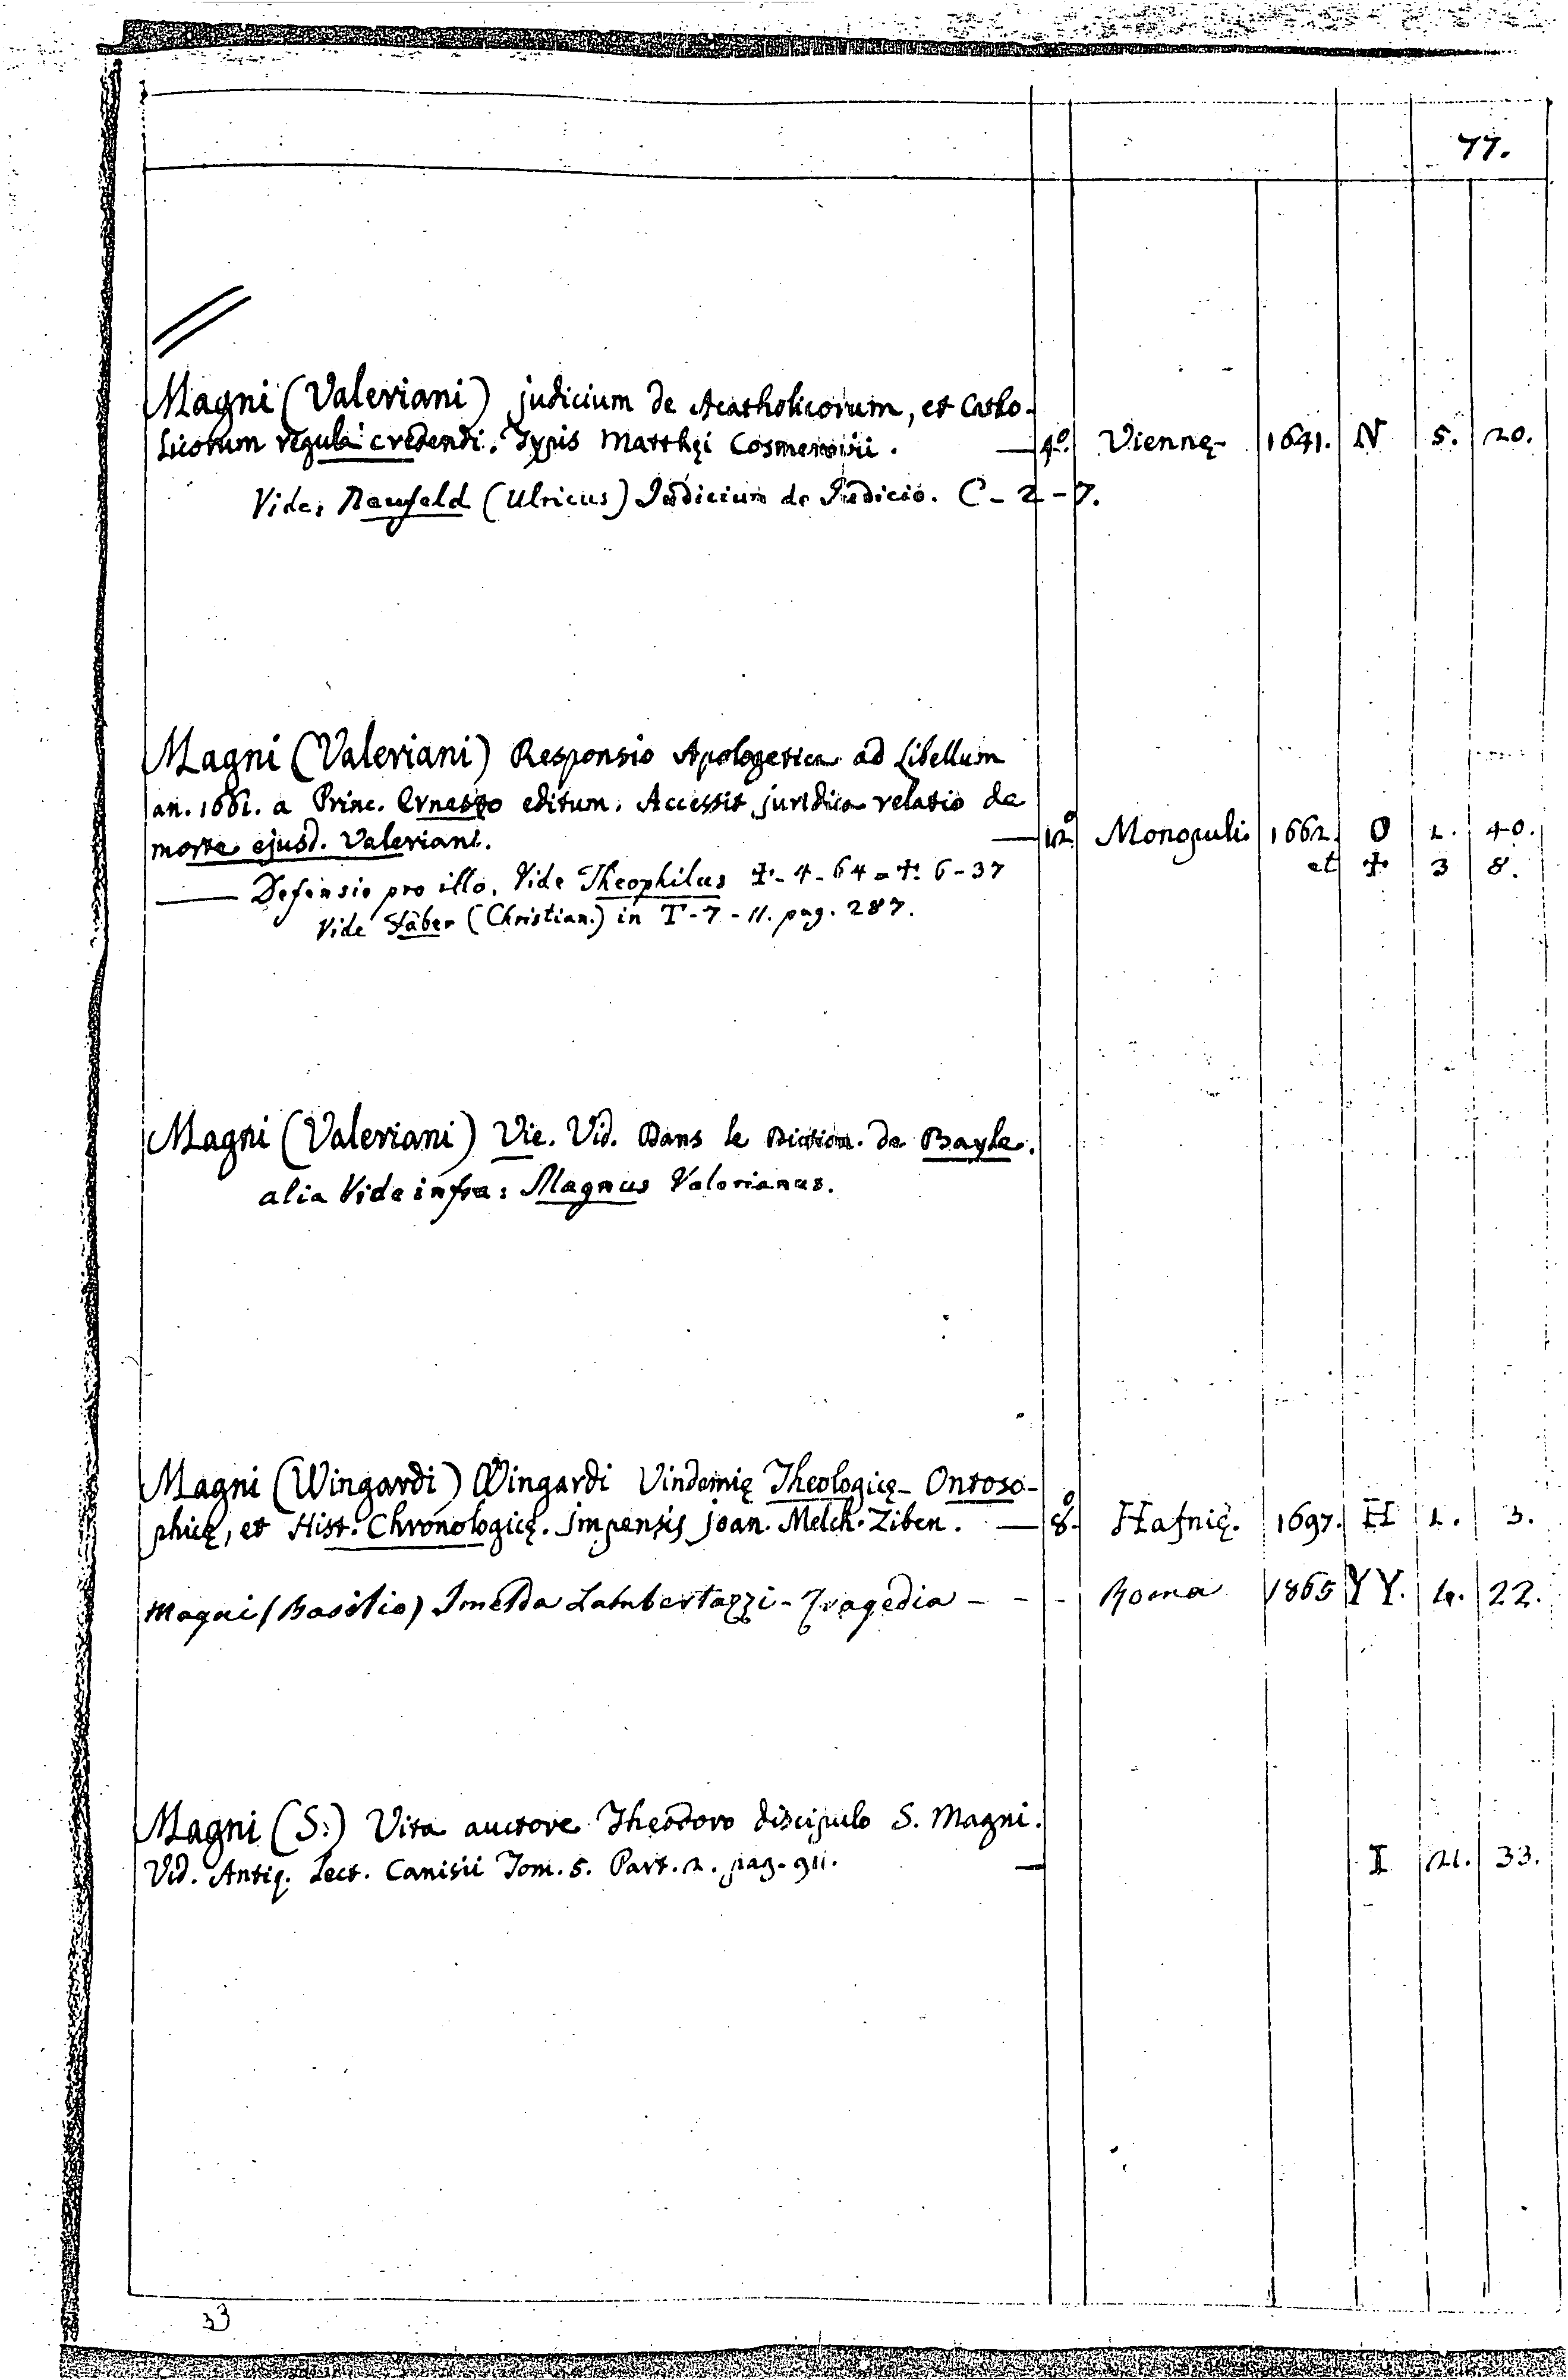 77.
Magni (Valeriani) judicium de Acatholicorum, et Catho-
licorum regula credendi. Typis Matthęi Cosmerovii. — 4.º Viennę 1641. N 5. 20.
Vide: Neufeld (Ulricus) Judicium de Judicio. C-2-7.
Magni (Valeriani) Responsio Apologetica ad Libellum
an. 1661. a Princ. Ernesto editum. Accessit juridica relatio de
morte ejusd. Valeriani. — 12º Monopuli 1662. O 2. 40.
et ‡ 3 8.
— Defensio pro illo. Vide Theophilus ‡-4-64 = ‡. 6-37
Vide Faber (Christian.) in T-7-11. pag. 287.
Magni (Valeriani) Vie. Vid. Dans le Diction. de Bayle.
alia Vide infra: Magnus Valerianus.
Magni (Wingardi) Wingardi Vindemię Theologicę-Ontoso-
phicę, et Hist. Chronologicę. impensis joan. Melch. Ziben. — 8.º Hafnię. 1697. H 2. 3.
Magni (Basilio) Imelda Lambertazzi - Tragedia - - - Roma 1865 YY. 4. 22.
Magni (S.) Vita auctore Theodoro discipulo S. Magni.
Vid. Antiq. Lect. Canisii Tom. 5. Part. 2. pag. 911. — I 21. 33.
33